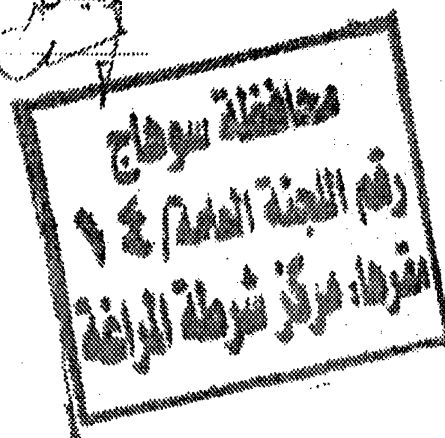 محافظة سوهاج
رقم اللجنة العامة ١٤
مقرها: مركز شرطة المراغة